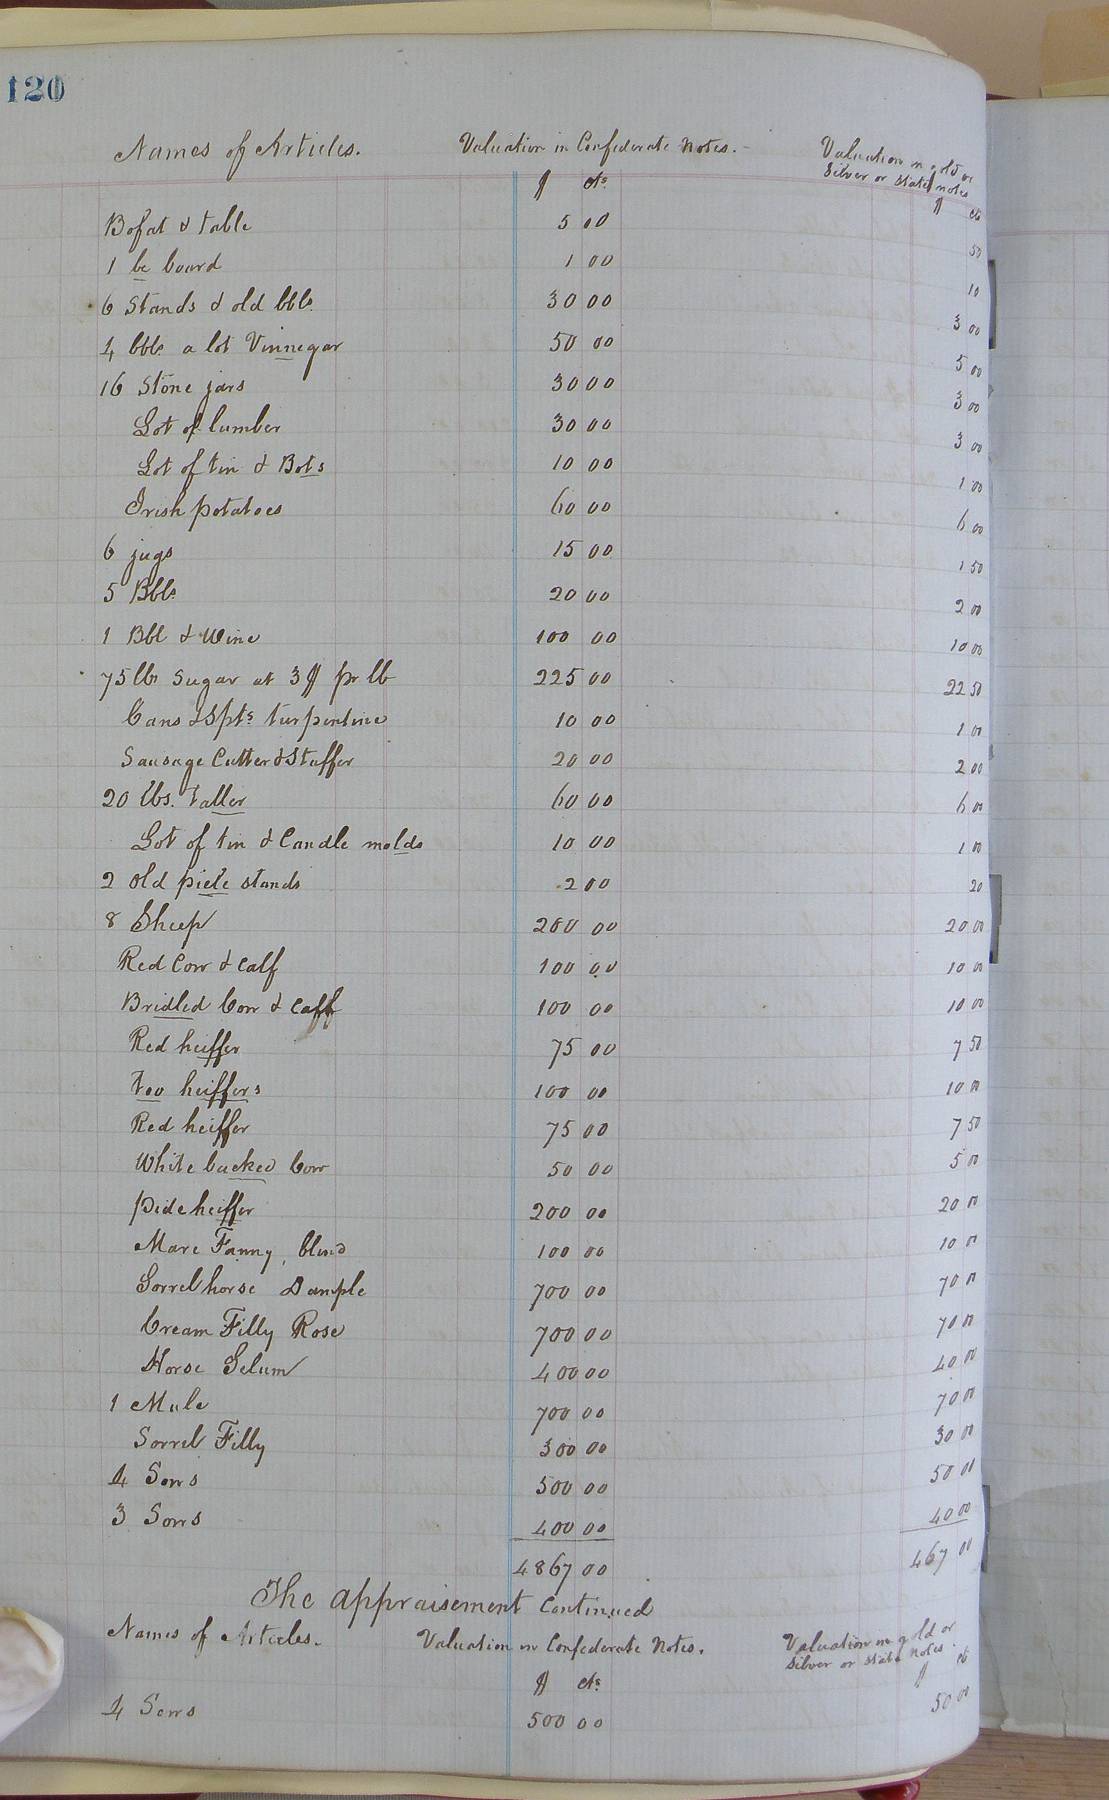 120
Names of Articles. Valuation in Confederate Notes. Valuation in gold or
Silver or State notes
$ cts $ cts
Bofat & table 5 00 50
1 be board 1 00 10
6 Stands & old bbls. 30 00 3 00
4 bbls a lot Vinnegar 50 00 5 00
16 Stone jars 30 00 3 00
Lot of lumber 30 00 3 00
Lot of tin & Bots 10 00 1 00
Irish potatoes 60 00 6 00
6 jugs 15 00 1 50
5 Bbls 20 00 2 00
1 Bbl & Wine 100 00 10 00
75 lbs Sugar at 3$ pr lb 225 00 22 50
Cans & Spts turpentine 10 00 1 00
Sausage Cutter & Stuffer 20 00 2 00
20 lbs. taller 60 00 6 00
Lot of tin & Candle molds 10 00 1 00
2 old piele stands 2 00 20
8 Sheep 200 00 20 00
Red Cow & Calf 100 00 10 00
Bridled Cow & Caff 100 00 10 00
Red heiffer 75 00 7 50
Two heiffers 100 00 10 00
Red heiffer 75 00 7 50
White backed Cow 50 00 5 00
Pide heiffer 200 00 20 00
Mare Fanny, blind 100 00 10 00
Sorrel horse Dample 700 00 70 00
Cream Filly Rose 700 00 70 00
Horse Selum 400 00 40 00
1 Mule 700 00 70 00
Sorrel Filly 300 00 30 00
4 Sows 500 00 50 00
3 Sows 400 00 40 00
4867 00 467 00
The appraisement Continued
Names of Articles. Valuation in Confederate Notes. Valuation in gold or
Silver or State notes.
$ cts $ ct
4 Sows 500 00 50 00